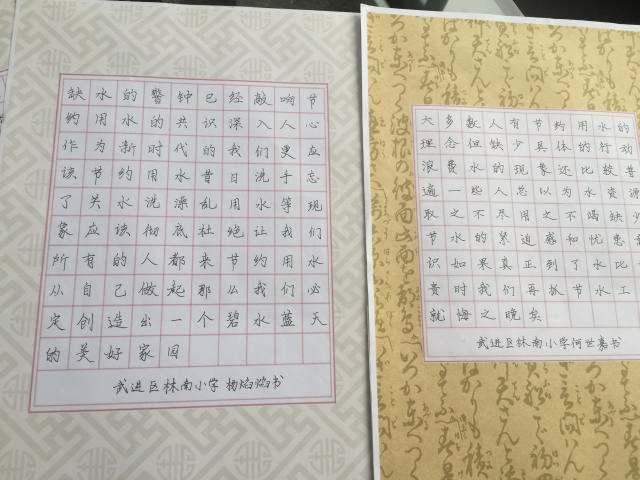 缺水的警钟已经敲响节
约用水的共识深入人心
作为新时代的我们更应
该节约用水昔日洗手忘
了关水洗漂乱用水等现
象应该彻底杜绝让我们
所有的人都来节约用水
从自己做起那么我们必
定创造出一个碧水蓝天
的美好家园
武进区林南小学 杨焰焰书
大多数人有节约用水的
理念但缺少具体的行动
浪费水的现象还比较普
遍一些人总以为水资源
取之不尽用之不竭缺少
节水的紧迫感和忧患意
识如果真正到了水比
贵时我们再抓节水工
就悔之晚矣
武进区林南小学何世嘉书